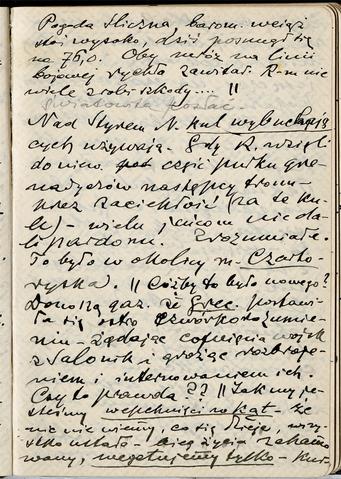 Pogoda śliczna barom. wciąż
stoi wysoko, dziś posunął się
na 76,0. Oby mróz na linii
bojowej rychło zawitał. R-m nie
wiele zrobi szkody.... ||
Nad Styrem N. kul wybuchają
cych używają. Gdy R. wzięli
do niew. część pułku gre-
nadyerów następcy tronu-
przez zaciekłość (za te ku-
le) - wielu jeńcom nie da-
li pardonu. Zrozumiałe.
To było w okolicy m. Czarto-
ryska. || Cóżby to było nowego?
Donoszą gaz. że Grec. postawi-
ła się ostro czwórporozumie-
niu - żądając cofnięcia wojsk
z Salonik i grożąc rozbroje-
niem i internowaniem ich.
Czy to prawda?? || Jak my je-
steśmy wepchnięci na kąt - że
nic nie wiemy, co się dzieje, wszy-
stko ustało - bieg życia zahamo
wany, wegetujemy tylko -